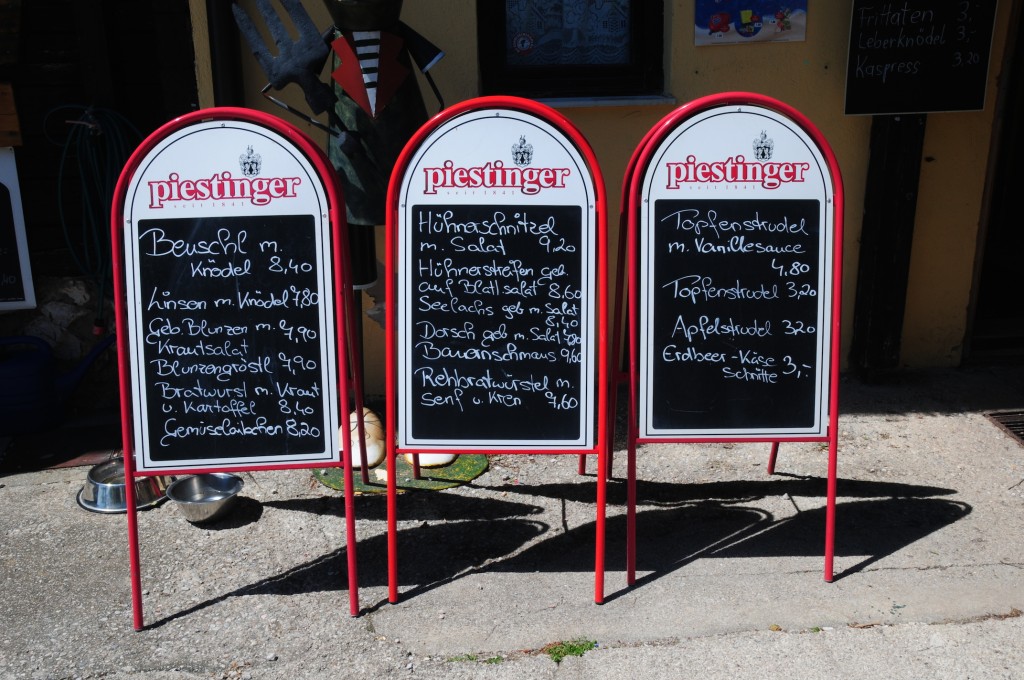 piestinger
seit 1841
Beuschl m.
Knödel 8,40
Linsen m. Knödel 7,80
Geb. Blunzen m. 7,90
Krautsalat
Blunzengröstl 7,90
Bratwurst m. Kraut
u. Kartoffel 8,40
Gemüselaibchen 8,20
piestinger
seit 1841
Hühnerschnitzel
m. Salat 9,20
Hühnerstreifen geb.
auf Blattsalat 8,60
Seelachs geb m. Salat
8,40
Dorsch geb m. Salat
Bauernschmaus 9,60
Rehbratwürstel m.
Senf u. Kren 9,60
piestinger
seit 1841
Topfenstrudel
m. Vanillesauce
4,80
Topfenstrudel 3,20
Apfelstrudel 320
Erdbeer-Käse
schnitte 3,-
Frittaten 3,-
Leberknödel 3,-
Kaspress 3,20